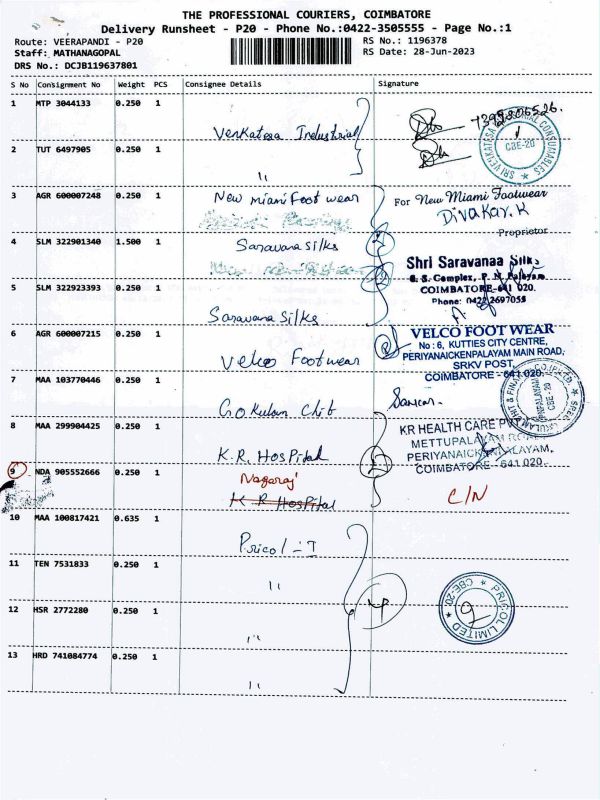 THE PROFESSIONAL COURIERS, COIMBATORE
Delivery Runsheet - P20 - Phone No.:0422-3505555 - Page No.:1
Route: VEERAPANDI - P20
RS No.: 1196378
Staff: MATHANAGOPAL
RS Date: 28-Jun-2023
DRS No.: DCJB119637801
S No Consignment No Weight PCS Consignee Details Signature
1 MTP 3044133 0.250 1
Venkatesa Industrial
2 TUT 6497905 0.250 1
"
SRI VENKATESA CONSUMABLES
CBE-20
3 AGR 600007248 0.250 1
New miami Foot wear
For New Miami Footwear
Divakar.K
Proprietor
4 SLM 322901340 1.500 1
Saravana Silks
Shri Saravanaa Silks
G. S. Complex, P. N. Palayam
COIMBATORE-641 020.
Phone: 0422 2697055
5 SLM 322923393 0.250 1
Saravana Silks
6 AGR 600007215 0.250 1
Velco Footwear
VELCO FOOT WEAR
No: 6, KUTTIES CITY CENTRE,
PERIYANAICKENPALAYAM MAIN ROAD,
SRKV POST,
COIMBATORE - 641 020.
7 MAA 103770446 0.250 1
Gokulam Chit
8 MAA 299904425 0.250 1
K.R. Hospital
KR HEALTH CARE PVT
METTUPALAYAM ROAD
PERIYANAICKENPALAYAM,
COIMBATORE - 641 020.
9 NDA 905552666 0.250 1
Nagaraj
K R Hospital
C/N
10 MAA 100817421 0.635 1
Pricol - I
11 TEN 7531833 0.250 1
"
12 HSR 2772280 0.250 1
"
4
PRICOL LIMITED
CBE-20
13 HRD 741084774 0.250 1
"